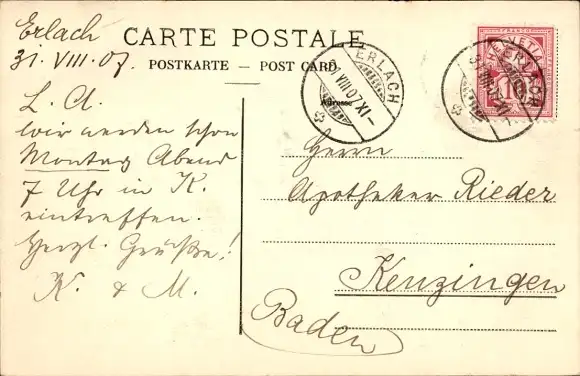 Erlach
31. VIII. 07.
CARTE POSTALE
POSTKARTE — POST CARD
Adresse
ERLACH
31 VIII 07 XI–
ERLACH
VIII 07 XI–
HELVETIA
FRANCO
10
L. A.
Wir werden schon
Montag Abend
7 Uhr in K.
eintreffen.
Herzl. Grüße!
K. & M.
Herrn
Apotheker Rieder
Kenzingen
Baden